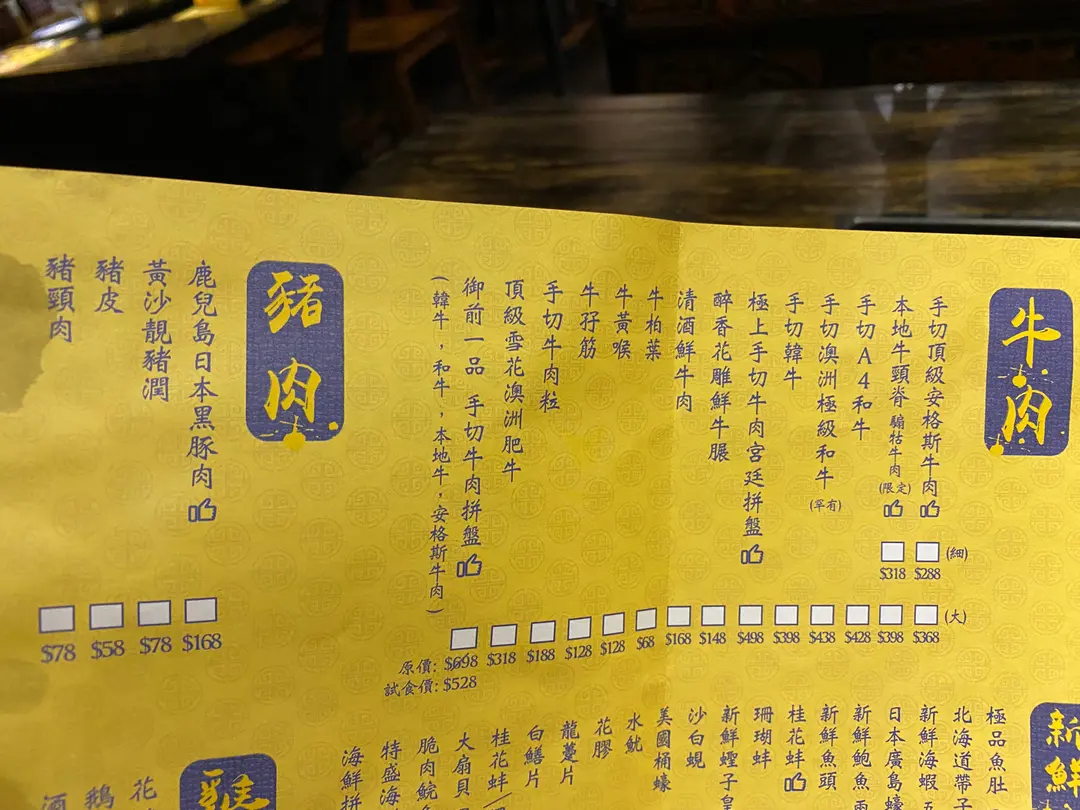 牛肉
手切頂級安格斯牛肉
(細)
$288
(大)
$368
本地牛頸脊 騸牯牛肉 (限定)
$318
$398
手切A4和牛
$428
手切澳洲極級和牛 (罕有)
$438
手切韓牛
$398
極上手切牛肉宮廷拼盤
$498
醉香花雕鮮牛𦟌
$148
清酒鮮牛肉
$168
牛柏葉
$68
牛黃喉
$128
牛孖筋
$128
手切牛肉粒
$188
頂級雪花澳洲肥牛
$318
御前一品 手切牛肉拼盤
(韓牛，和牛，本地牛，安格斯牛肉)
原價: $698
試食價: $528
豬肉
鹿兒島日本黑豚肉
$168
黃沙靚豬潤
$78
豬皮
$58
豬頸肉
$78
新鮮
極品魚肚
北海道帶子
新鮮海蝦
日本廣島蠔
新鮮鮑魚
新鮮魚頭
桂花蚌
珊瑚蚌
新鮮蟶子皇
沙白蜆
美國桶蠔
水魷
花膠
龍躉片
白鱔片
桂花蚌
大扇貝
脆肉鯇
特盛海
海鮮拼
花
鵝
酒